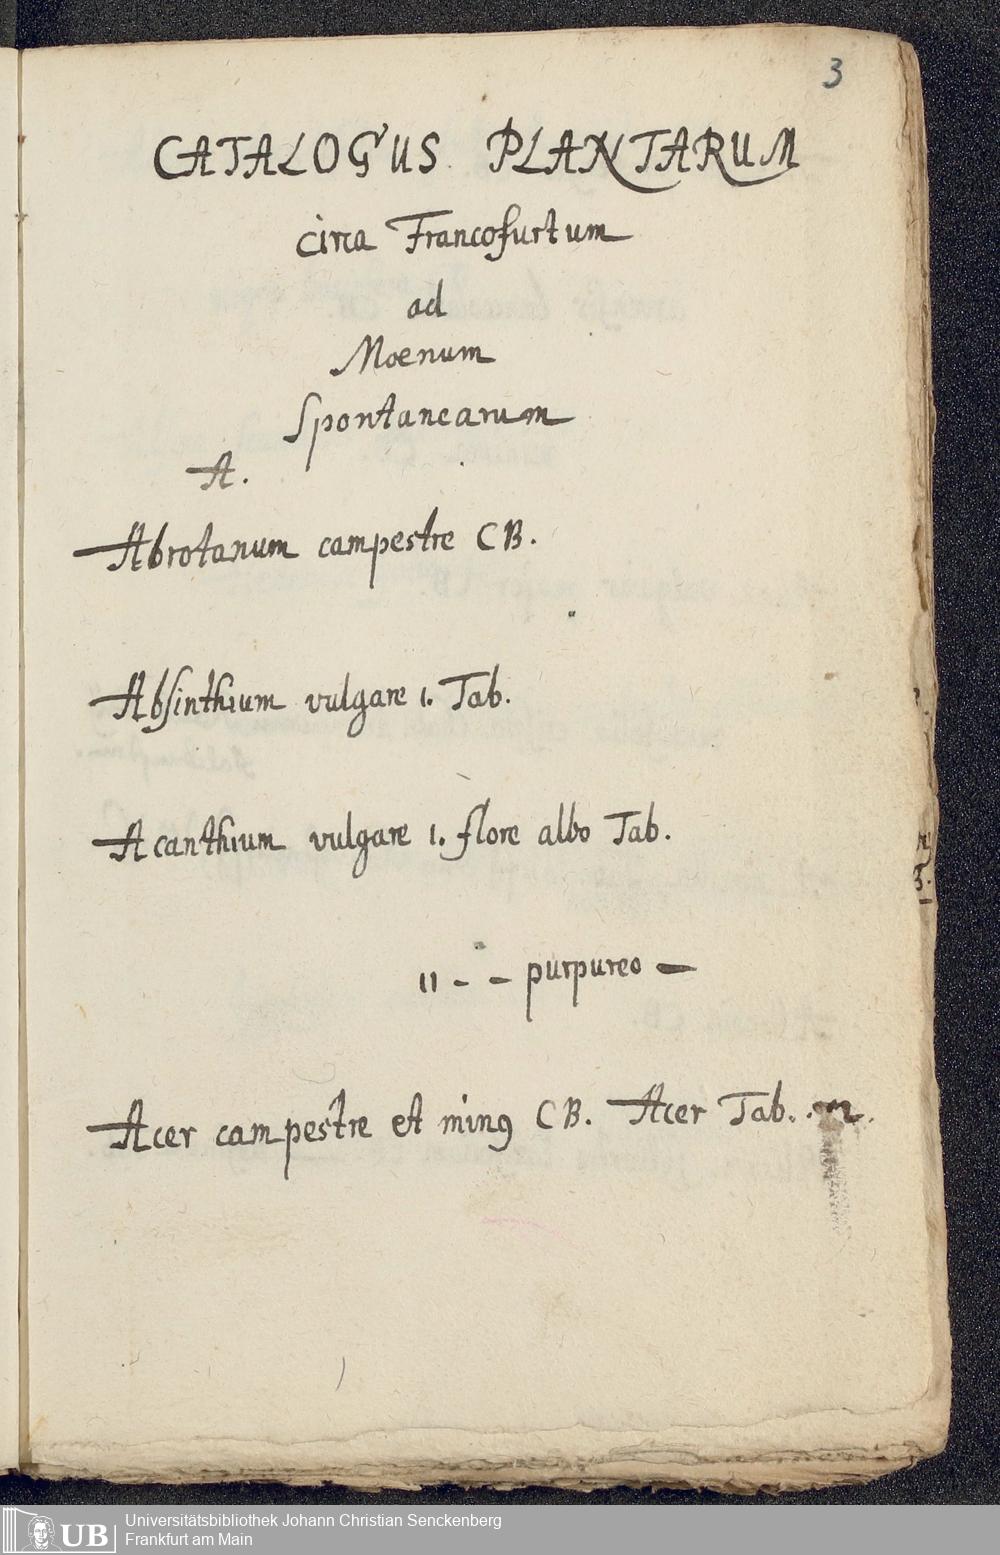 3
CATALOGUS PLANTARUM
circa Francofurtum
ad
Moenum
Spontanearum
A.
Abrotanum campestre CB.
Absinthium vulgare 1. Tab.
Acanthium vulgare 1. flore albo Tab.
11 - - purpureo -
Acer campestre et minꝰ CB. Acer Tab.
UB
Universitätsbibliothek Johann Christian Senckenberg
Frankfurt am Main